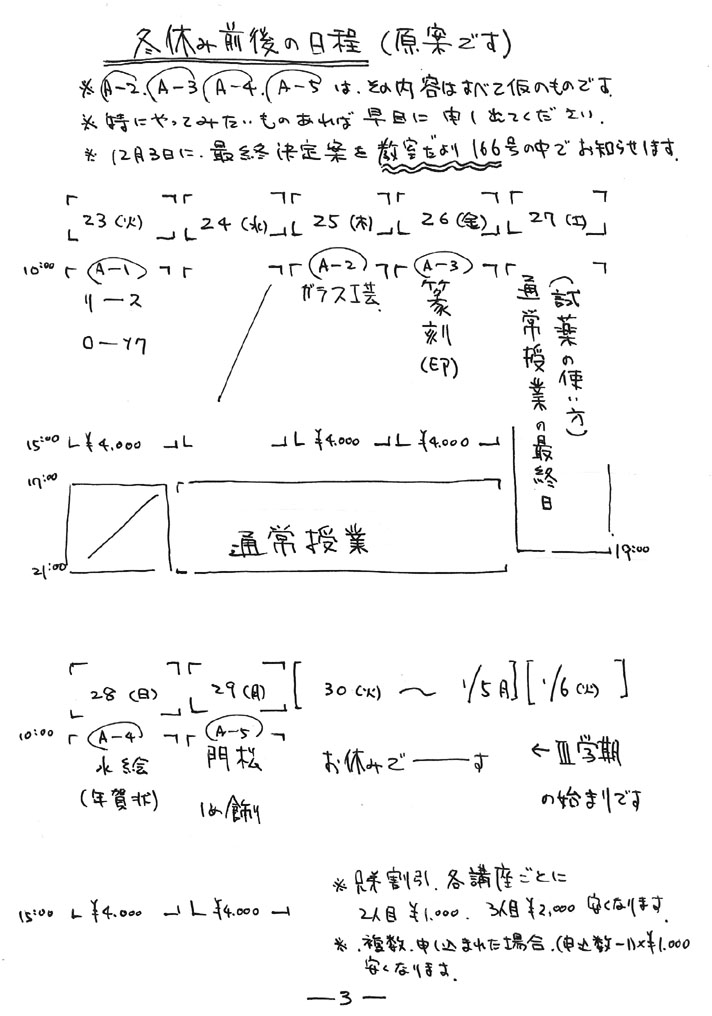 冬休み前後の日程(原案です)
※A-2.A-3 A-4.A-5 は、その内容はすべて仮のものです
※特にやってみたいものあれば早目に申し出てください.
※12月3日に、最終決定案を教室だより166号の中でお知らせます.
23(火) 24(水) 25(木) 26(金) 27(土)
10:00 A-1 A-2 A-3
リース
ローソク
ガラス工芸
篆刻
(印)
(試薬の使い方)
通常授業の最終日
15:00 ¥4.000 ¥4.000 ¥4.000
17:00
通常授業
21:00
19:00
28(日) 29(月) 30(火) 〜 1/5月 1/6(火)
10:00 A-4 A-5
水絵
(年賀状)
門松
しめ飾り
お休みで――す
←Ⅲ学期
の始まりです
15:00 ¥4.000 ¥4.000
※兄弟割引.各講座ごとに
2人目 ¥1.000. 3人目 ¥2,000 安くなります.
※.複数.申し込まれた場合.(申込数-1)×¥1.000
安くなります.
―3―